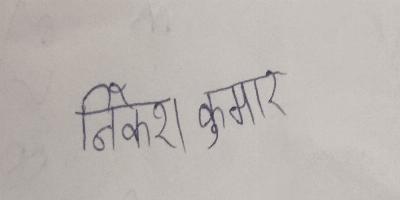 निकेश कुमार